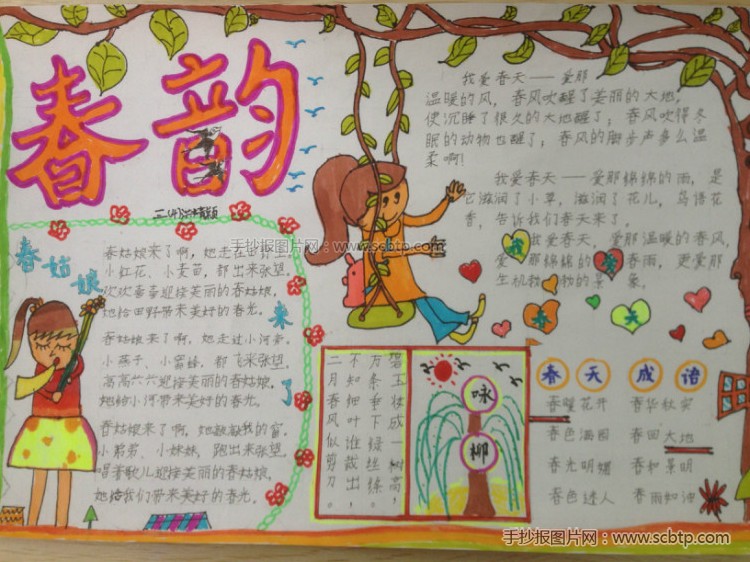 春韵
春姑娘来了
春姑娘来了啊，她走在田野里，
小红花、小麦苗，都出来张望，
欢欢喜喜迎接美丽的春姑娘，
她给田野带来美好的春光。
春姑娘来了啊，她走过小河旁，
小燕子、小蜜蜂，都飞来张望，
高高兴兴迎接美丽的春姑娘，
她给小河带来美好的春光。
春姑娘来了啊，她敲敲我的窗，
小弟弟、小妹妹，跑出来张望，
唱着歌儿迎接美丽的春姑娘，
她给我们带来美好的春光。
我爱春天——爱那
温暖的风，春风吹醒了美丽的大地，
使沉睡了很久的大地醒了；春风吹得冬
眠的动物也醒了；春风的脚步声多么温
柔啊！
我爱春天——爱那绵绵的雨，是
它滋润了小草，滋润了花儿，鸟语花
香，告诉我们春天来了
我爱春天，爱那温暖的春风，
爱那绵绵的春雨，更爱那
生机勃勃的景象。
我爱
春天
碧玉妆成一树高，
万条垂下绿丝绦。
不知细叶谁裁出，
二月春风似剪刀。
咏柳
春天成语
春暖花开 春华秋实
春色满园 春回大地
春光明媚 春和景明
春色迷人 春雨如油
手抄报图片网：www.scbtp.com
手抄报图片网：www.scbtp.com